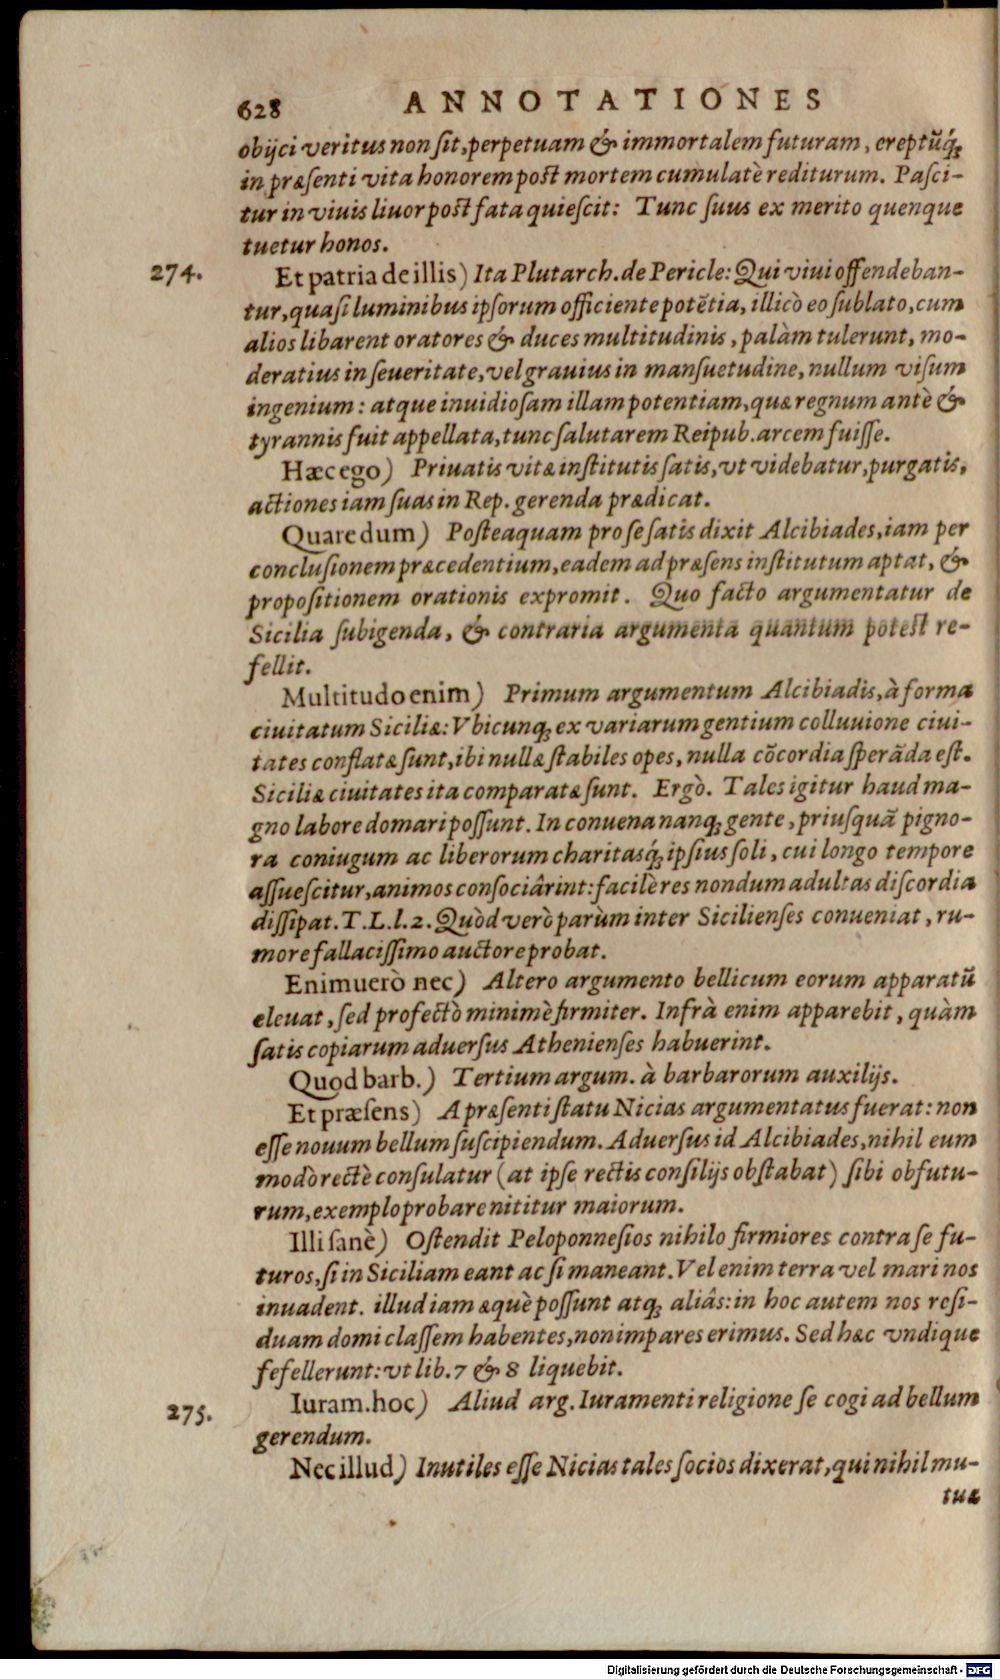 628 ANNOTATIONES
obijci veritus non ſit, perpetuam & immortalem futuram, ereptũq́;
in præſenti vita honorem post mortem cumulatè rediturum. Paſci-
tur in viuis liuor post fata quieſcit: Tunc ſuus ex merito quenque
tuetur honos.
274. Et patria de illis) Ita Plutarch. de Pericle: Qui viui offendeban-
tur, quaſi luminibus ipſorum officiente potẽtia, illicò eo ſublato, cum
alios libarent oratores & duces multitudinis, palàm tulerunt, mo-
deratius in ſeueritate, vel grauius in manſuetudine, nullum viſum
ingenium: atque inuidioſam illam potentiam, quæ regnum antè &
tyrannis fuit appellata, tunc ſalutarem Reipub. arcem fuiſſe.
Hæc ego) Priuatis vitæ inſtitutis ſatis, vt videbatur, purgatis,
actiones iam ſuas in Rep. gerenda prædicat.
Quare dum) Poſteaquam pro ſe ſatis dixit Alcibiades, iam per
concluſionem præcedentium, eadem ad præſens inſtitutum aptat, &
propoſitionem orationis expromit. Quo facto argumentatur de
Sicilia ſubigenda, & contraria argumenta quantum potest re-
fellit.
Multitudo enim) Primum argumentum Alcibiadis, à forma
ciuitatum Siciliæ: Vbicunq; ex variarum gentium colluuione ciui-
tates conflatæ ſunt, ibi nullæ ſtabiles opes, nulla cõcordia ſperãda eſt.
Siciliæ ciuitates ita comparatæ ſunt. Ergò. Tales igitur haud ma-
gno labore domari poſſunt. In conuena nanq; gente, priuſquã pigno-
ra coniugum ac liberorum charitasq́; ipſius ſoli, cui longo tempore
aſſueſcitur, animos conſociârint: facilè res nondum adultas diſcordia
diſſipat. T. L. l. 2. Quòd verò parùm inter Sicilienſes conueniat, ru-
more fallaciſſimo auctore probat.
Enimuerò nec) Altero argumento bellicum eorum apparatũ
eleuat, ſed profectò minimè firmiter. Infrà enim apparebit, quàm
ſatis copiarum aduerſus Athenienſes habuerint.
Quod barb.) Tertium argum. à barbarorum auxilijs.
Et præſens) A præſenti ſtatu Nicias argumentatus fuerat: non
eſſe nouum bellum ſuſcipiendum. Aduerſus id Alcibiades, nihil eum
modò rectè conſulatur (at ipſe rectis conſilijs obſtabat) ſibi obfutu-
rum, exemplo probare nititur maiorum.
Illi ſanè) Oſtendit Peloponneſios nihilo firmiores contra ſe fu-
turos, ſi in Siciliam eant ac ſi maneant. Vel enim terra vel mari nos
inuadent. illud iam æquè poſſunt atq; aliâs: in hoc autem nos reſi-
duam domi claſſem habentes, non impares erimus. Sed hæc vndique
fefellerunt: vt lib. 7 & 8 liquebit.
275. Iuram. hoc) Aliud arg. Iuramenti religione ſe cogi ad bellum
gerendum.
Nec illud) Inutiles eſſe Nicias tales ſocios dixerat, qui nihil mu-
tuæ
Digitalisierung gefördert durch die Deutsche Forschungsgemeinschaft - DFG